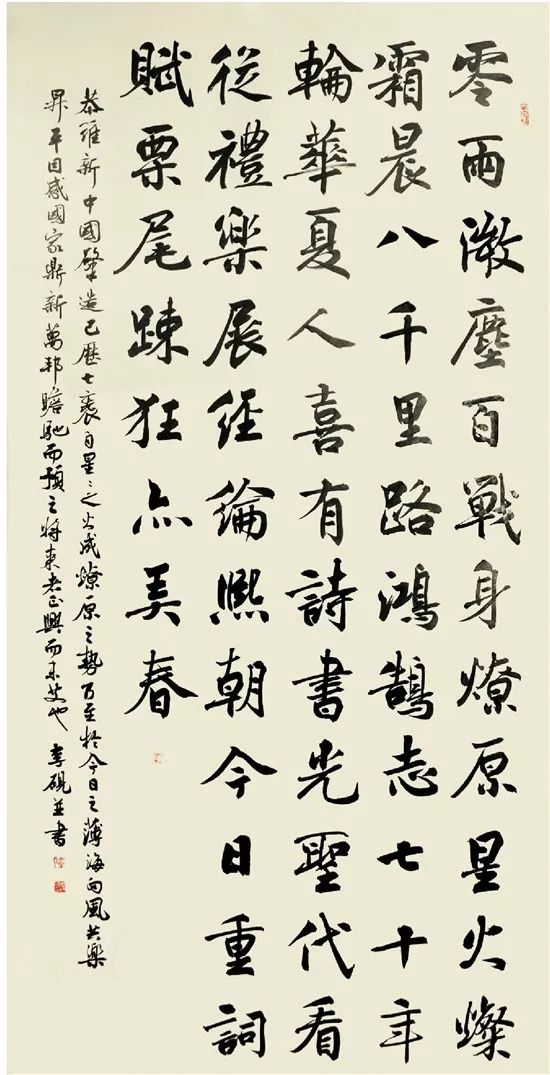 零雨溦塵百戰身燎原星火燦
霜晨八千里路鴻鵠志七十年
輪華夏人喜有詩書光聖代看
從禮樂展經綸熙朝今日重詞
賦栗尾踈狂亦美春
恭維新中國肇造已歷七袠自星〻之火成燎原之勢乃至於今日之薄海向風共樂
昇平因感國家鼎新萬邦瞻馳而預之將來者正興而未艾也 李硯並書